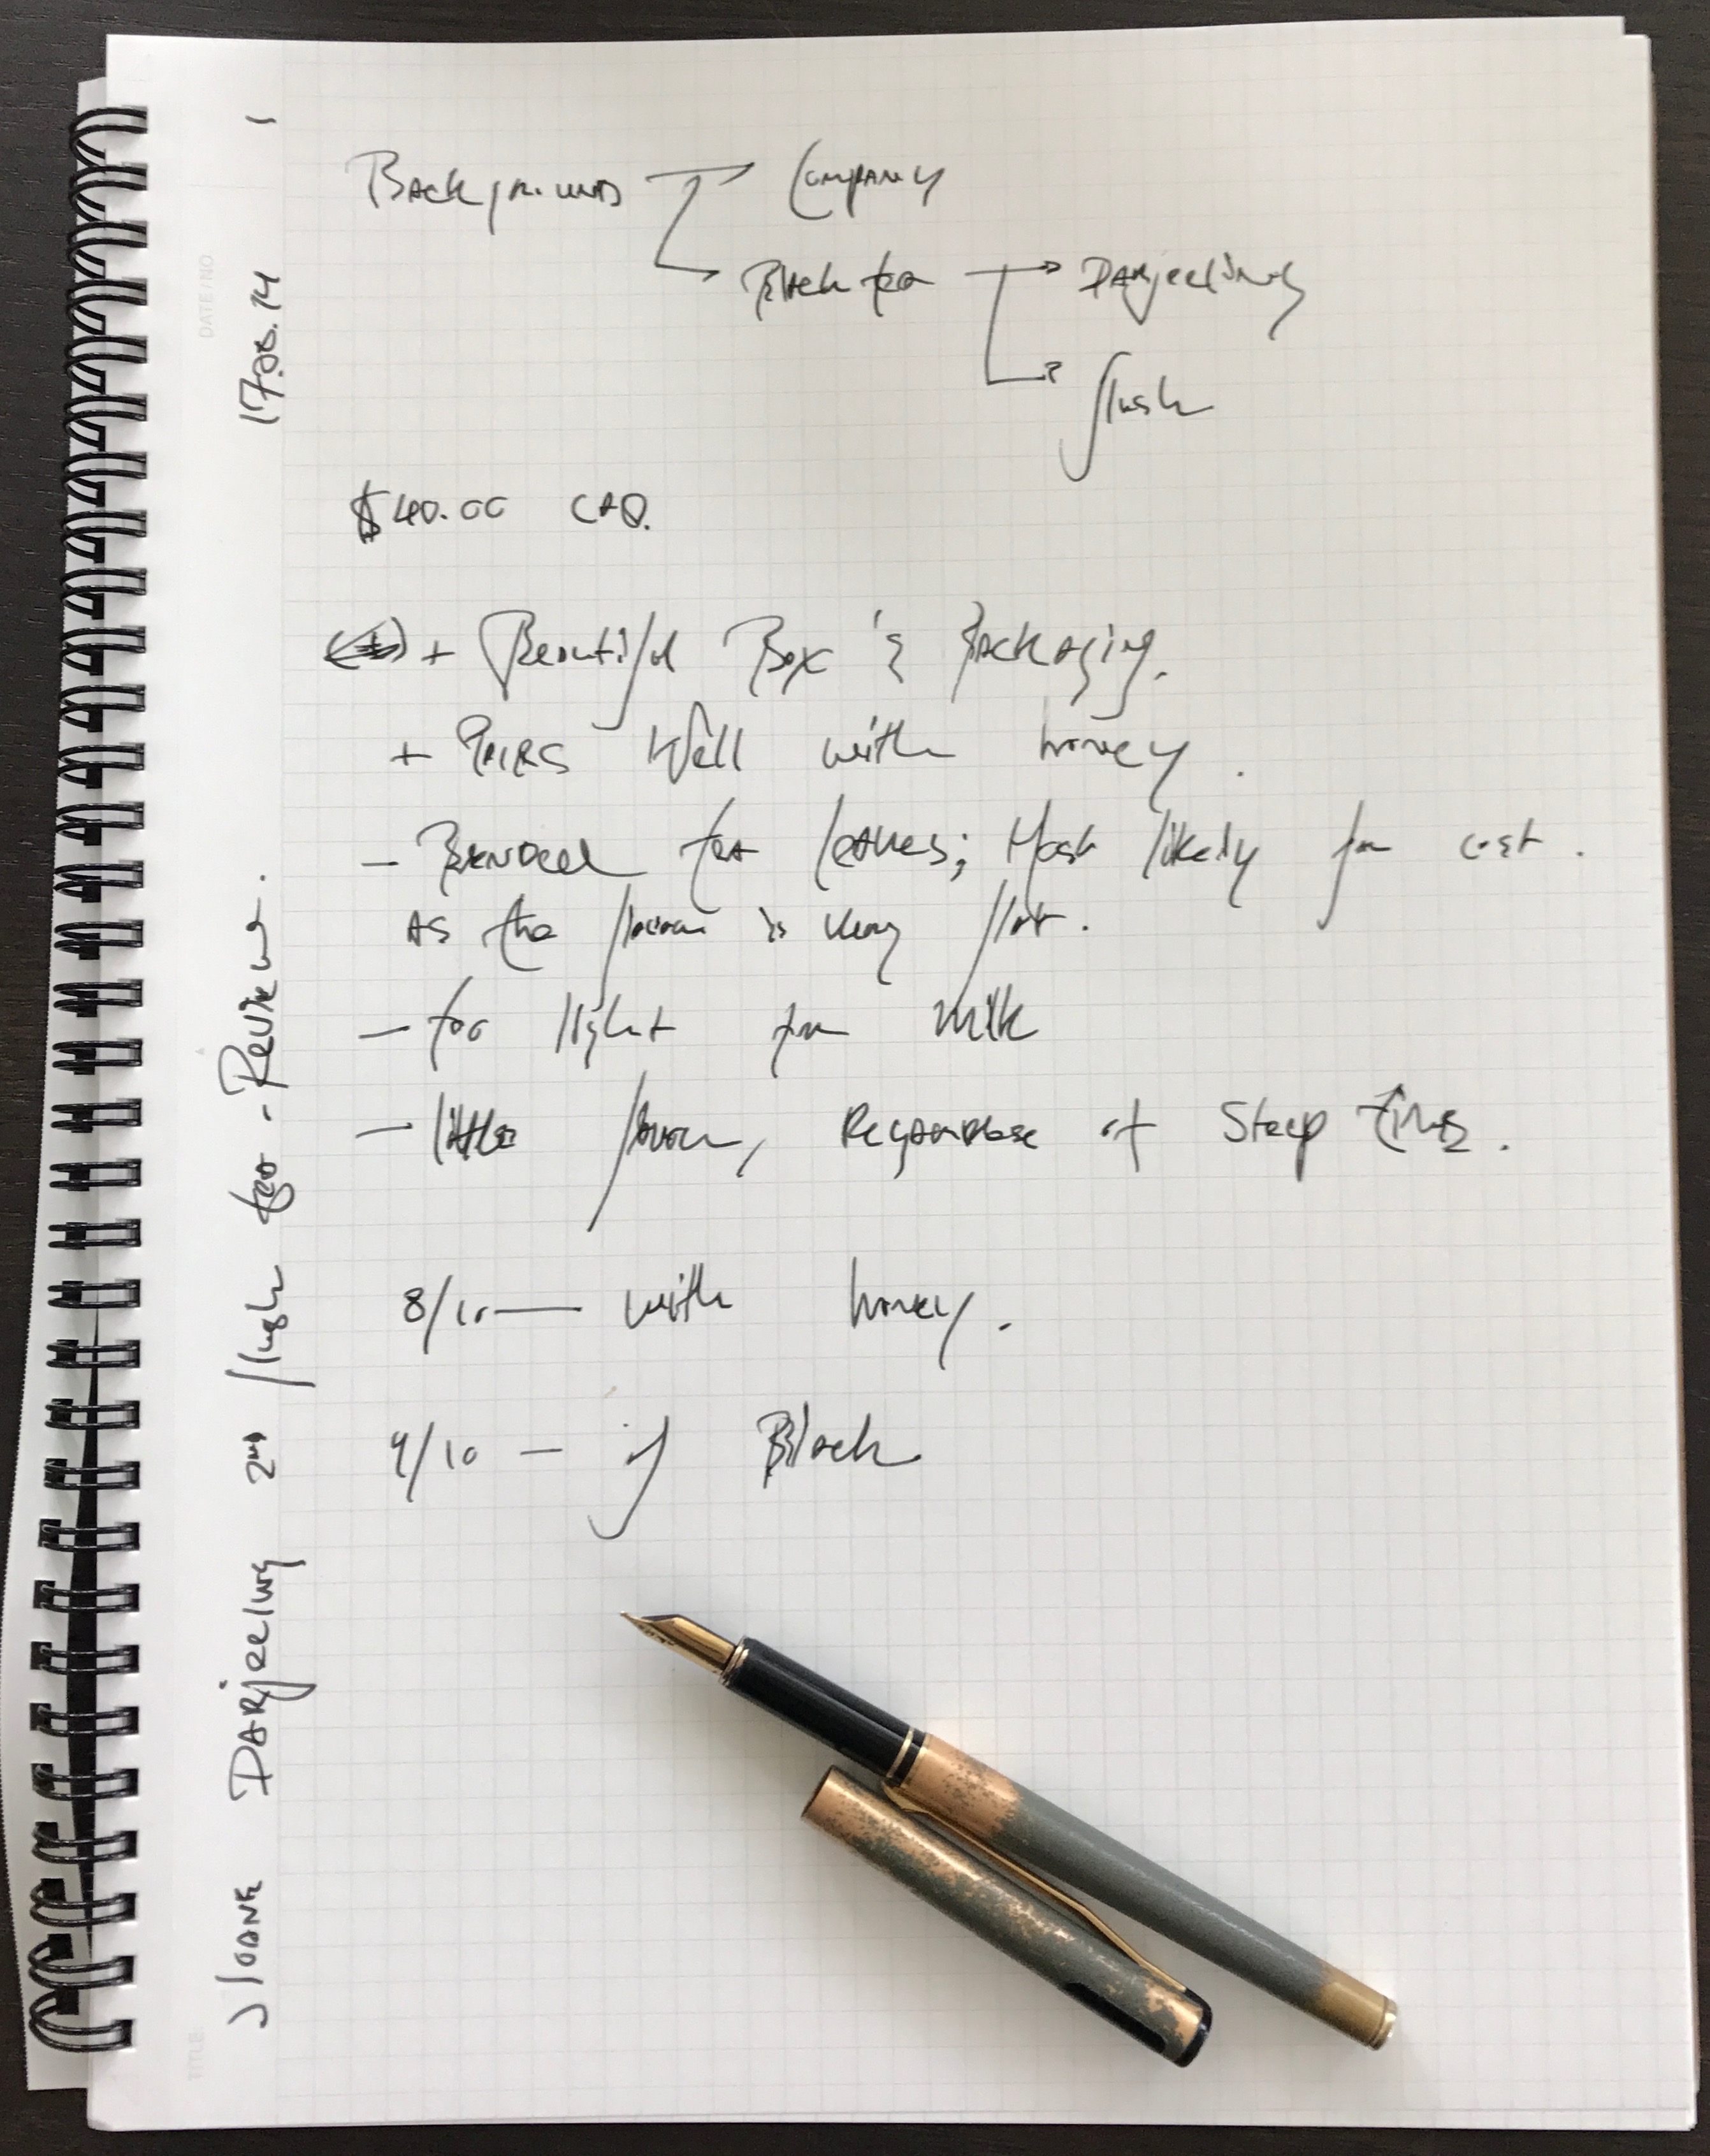 1
17.08.14
Sloane Darjeeling 2nd flush tea - Review.
Background Company
Black tea Darjeeling
flush
$40.00 CAD.
+ Beautiful Box & Packaging.
+ PAIRS Well with honey.
- Blended tea leaves; Most likely for cost.
AS the flavour is very flat.
- too light for milk
- little flavour, Regardless of Steep time.
8/10 — with honey.
4/10 - if Black.
DATE/NO
TITLE